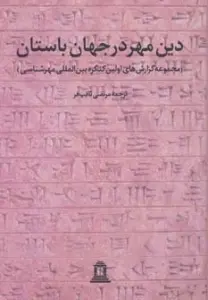 دین مهر در جهان باستان
(مجموعه گزارش‌های اولین کنگره بین‌المللی مهرشناسی)
ترجمه مرتضی ثاقب‌فر